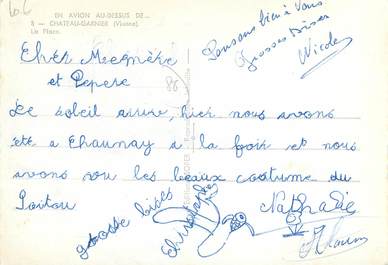 EN AVION AU-DESSUS DE...
8 - CHATEAU-GARNIER (Vienne)
La Place.
Pensons bien à Vous
Grosses Bises
Nicole
Cher Memère
et Pepere
Le soleil arrive, hier nous avons
été a Chaunay a la foire et nous
avons vou les beaux costume du
Poitou
Nathalie
grosse bises
Christophe
86